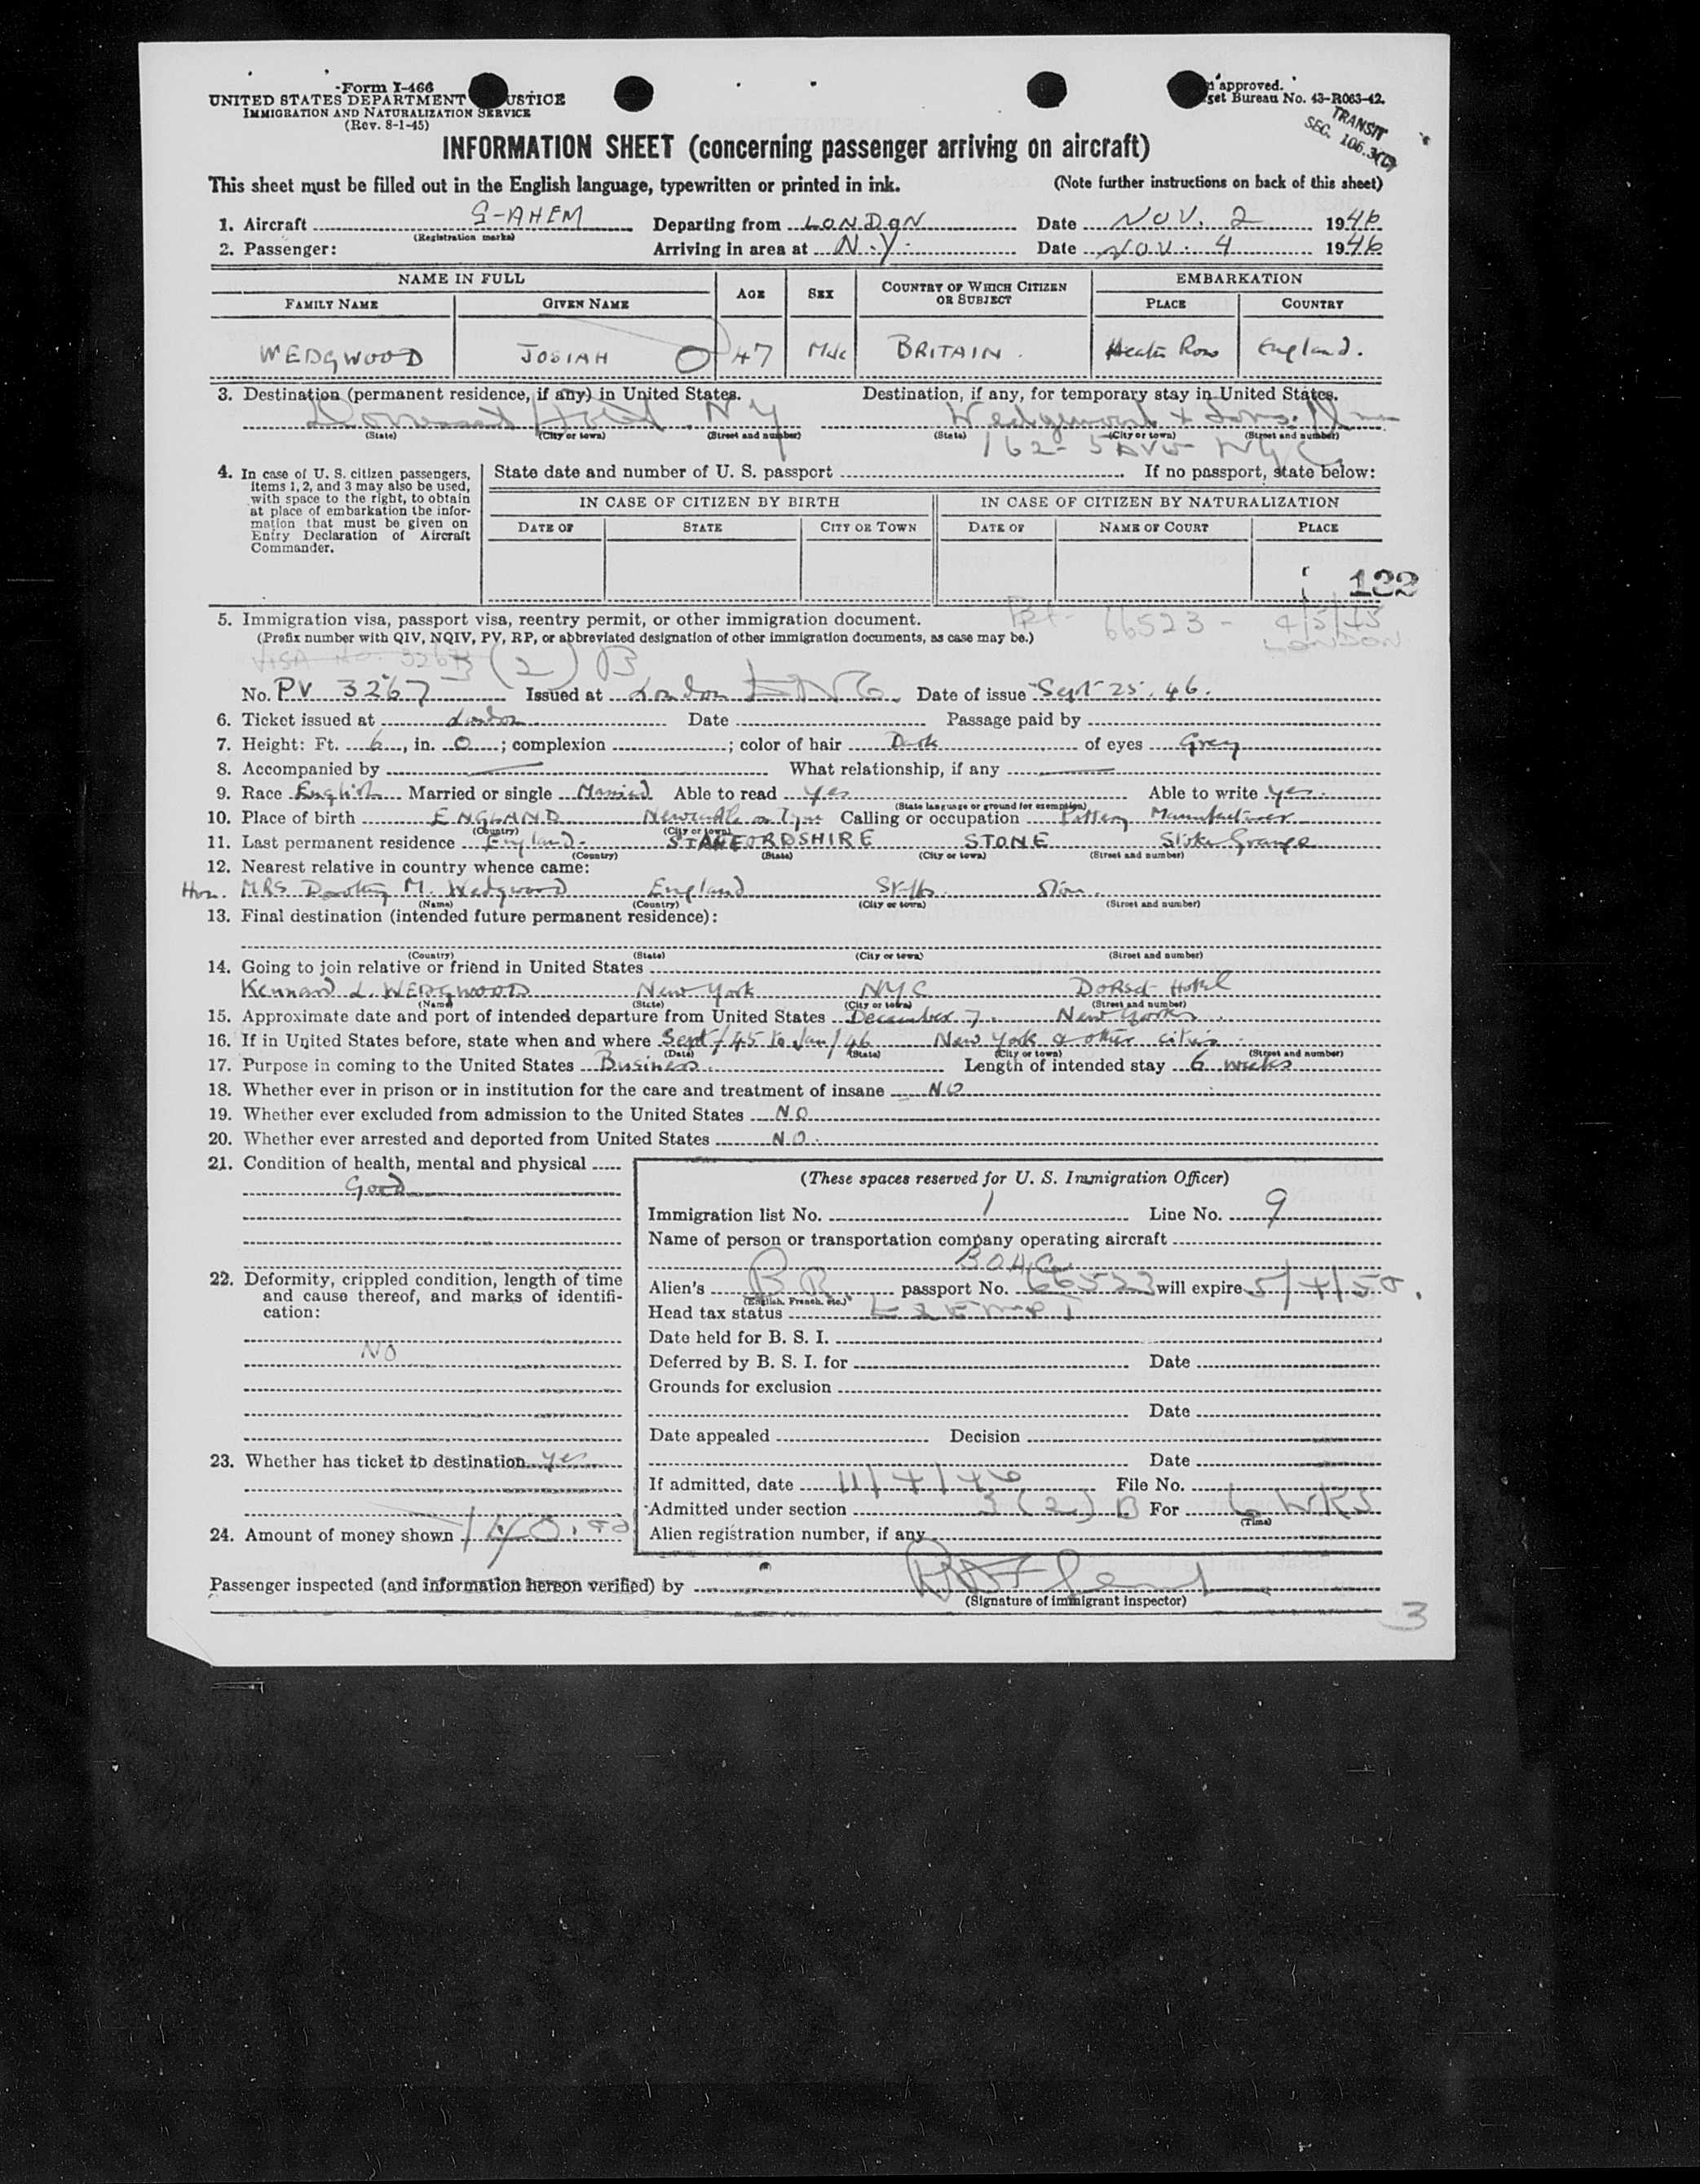 Form I-466
UNITED STATES DEPARTMENT USTICE
IMMIGRATION AND NATURALIZATION SERVICE
(Rev. 8-1-45)
approved.
get Bureau No. 43-R063-42.
TRANSIT
SEC. 106.3
INFORMATION SHEET (concerning passenger arriving on aircraft)
This sheet must be filled out in the English language, typewritten or printed in ink. (Note further instructions on back of this sheet)
1. Aircraft G-AHEM Departing from LONDON Date NOV. 2 1946
(Registration marks)
2. Passenger: Arriving in area at N.Y. Date NOV. 4 1946
NAME IN FULL AGE SEX COUNTRY OF WHICH CITIZEN OR SUBJECT EMBARKATION
FAMILY NAME GIVEN NAME PLACE COUNTRY
WEDGWOOD JOSIAH 47 Male BRITAIN. Heath Row England.
3. Destination (permanent residence, if any) in United States. Destination, if any, for temporary stay in United States.
Hotel N Y Wedgwood + Sons.
(State) (City or town) (Street and number) (State) (City or town) (Street and number)
162 - 5 AVE NYC
4. In case of U. S. citizen passengers, items 1, 2, and 3 may also be used, with space to the right, to obtain at place of embarkation the information that must be given on Entry Declaration of Aircraft Commander.
State date and number of U. S. passport If no passport, state below:
IN CASE OF CITIZEN BY BIRTH IN CASE OF CITIZEN BY NATURALIZATION
DATE OF STATE CITY OR TOWN DATE OF NAME OF COURT PLACE
122
5. Immigration visa, passport visa, reentry permit, or other immigration document. 66523 - 4/5/45
(Prefix number with QIV, NQIV, PV, RP, or abbreviated designation of other immigration documents, as case may be.) LONDON
VISA NO. 32673 (2) B
No. PV 3267 Issued at London ENG Date of issue Sept 25. 46.
6. Ticket issued at London Date Passage paid by
7. Height: Ft. 6, in. 0; complexion ; color of hair Dark of eyes Grey
8. Accompanied by What relationship, if any
9. Race English Married or single Married Able to read yes Able to write yes.
(State language or ground for exemption)
10. Place of birth ENGLAND Newcastle on Tyne Calling or occupation Pottery Manufacturer
(Country) (City or town)
11. Last permanent residence England. STAFFORDSHIRE STONE Stoke Grange
(Country) (State) (City or town) (Street and number)
12. Nearest relative in country whence came:
Hon. MRS Dorothy M. Wedgwood England Staffs. Stone.
(Name) (Country) (City or town) (Street and number)
13. Final destination (intended future permanent residence):
(Country) (State) (City or town) (Street and number)
14. Going to join relative or friend in United States
Kennard L. WEDGWOOD New York NYC Dorset Hotel
(Name) (State) (City or town) (Street and number)
15. Approximate date and port of intended departure from United States December 7. New York.
16. If in United States before, state when and where Sept/45 to Jan/46 New York & other cities.
(Date) (State) (City or town) (Street and number)
17. Purpose in coming to the United States Business. Length of intended stay 6 weeks
18. Whether ever in prison or in institution for the care and treatment of insane NO
19. Whether ever excluded from admission to the United States NO
20. Whether ever arrested and deported from United States NO.
21. Condition of health, mental and physical
Good
22. Deformity, crippled condition, length of time and cause thereof, and marks of identification:
NO
23. Whether has ticket to destination yes
24. Amount of money shown 140.00
(These spaces reserved for U. S. Immigration Officer)
Immigration list No. 1 Line No. 9
Name of person or transportation company operating aircraft
BOAC
Alien's BR passport No. 66523 will expire 5/4/50.
(English, French, etc.)
Head tax status EXEMPT
Date held for B. S. I.
Deferred by B. S. I. for Date
Grounds for exclusion
Date
Date appealed Decision
Date
If admitted, date 11/4/46 File No.
Admitted under section 3(2) B For 6 WKS
(Time)
Alien registration number, if any
Passenger inspected (and information hereon verified) by
(Signature of immigrant inspector)
3